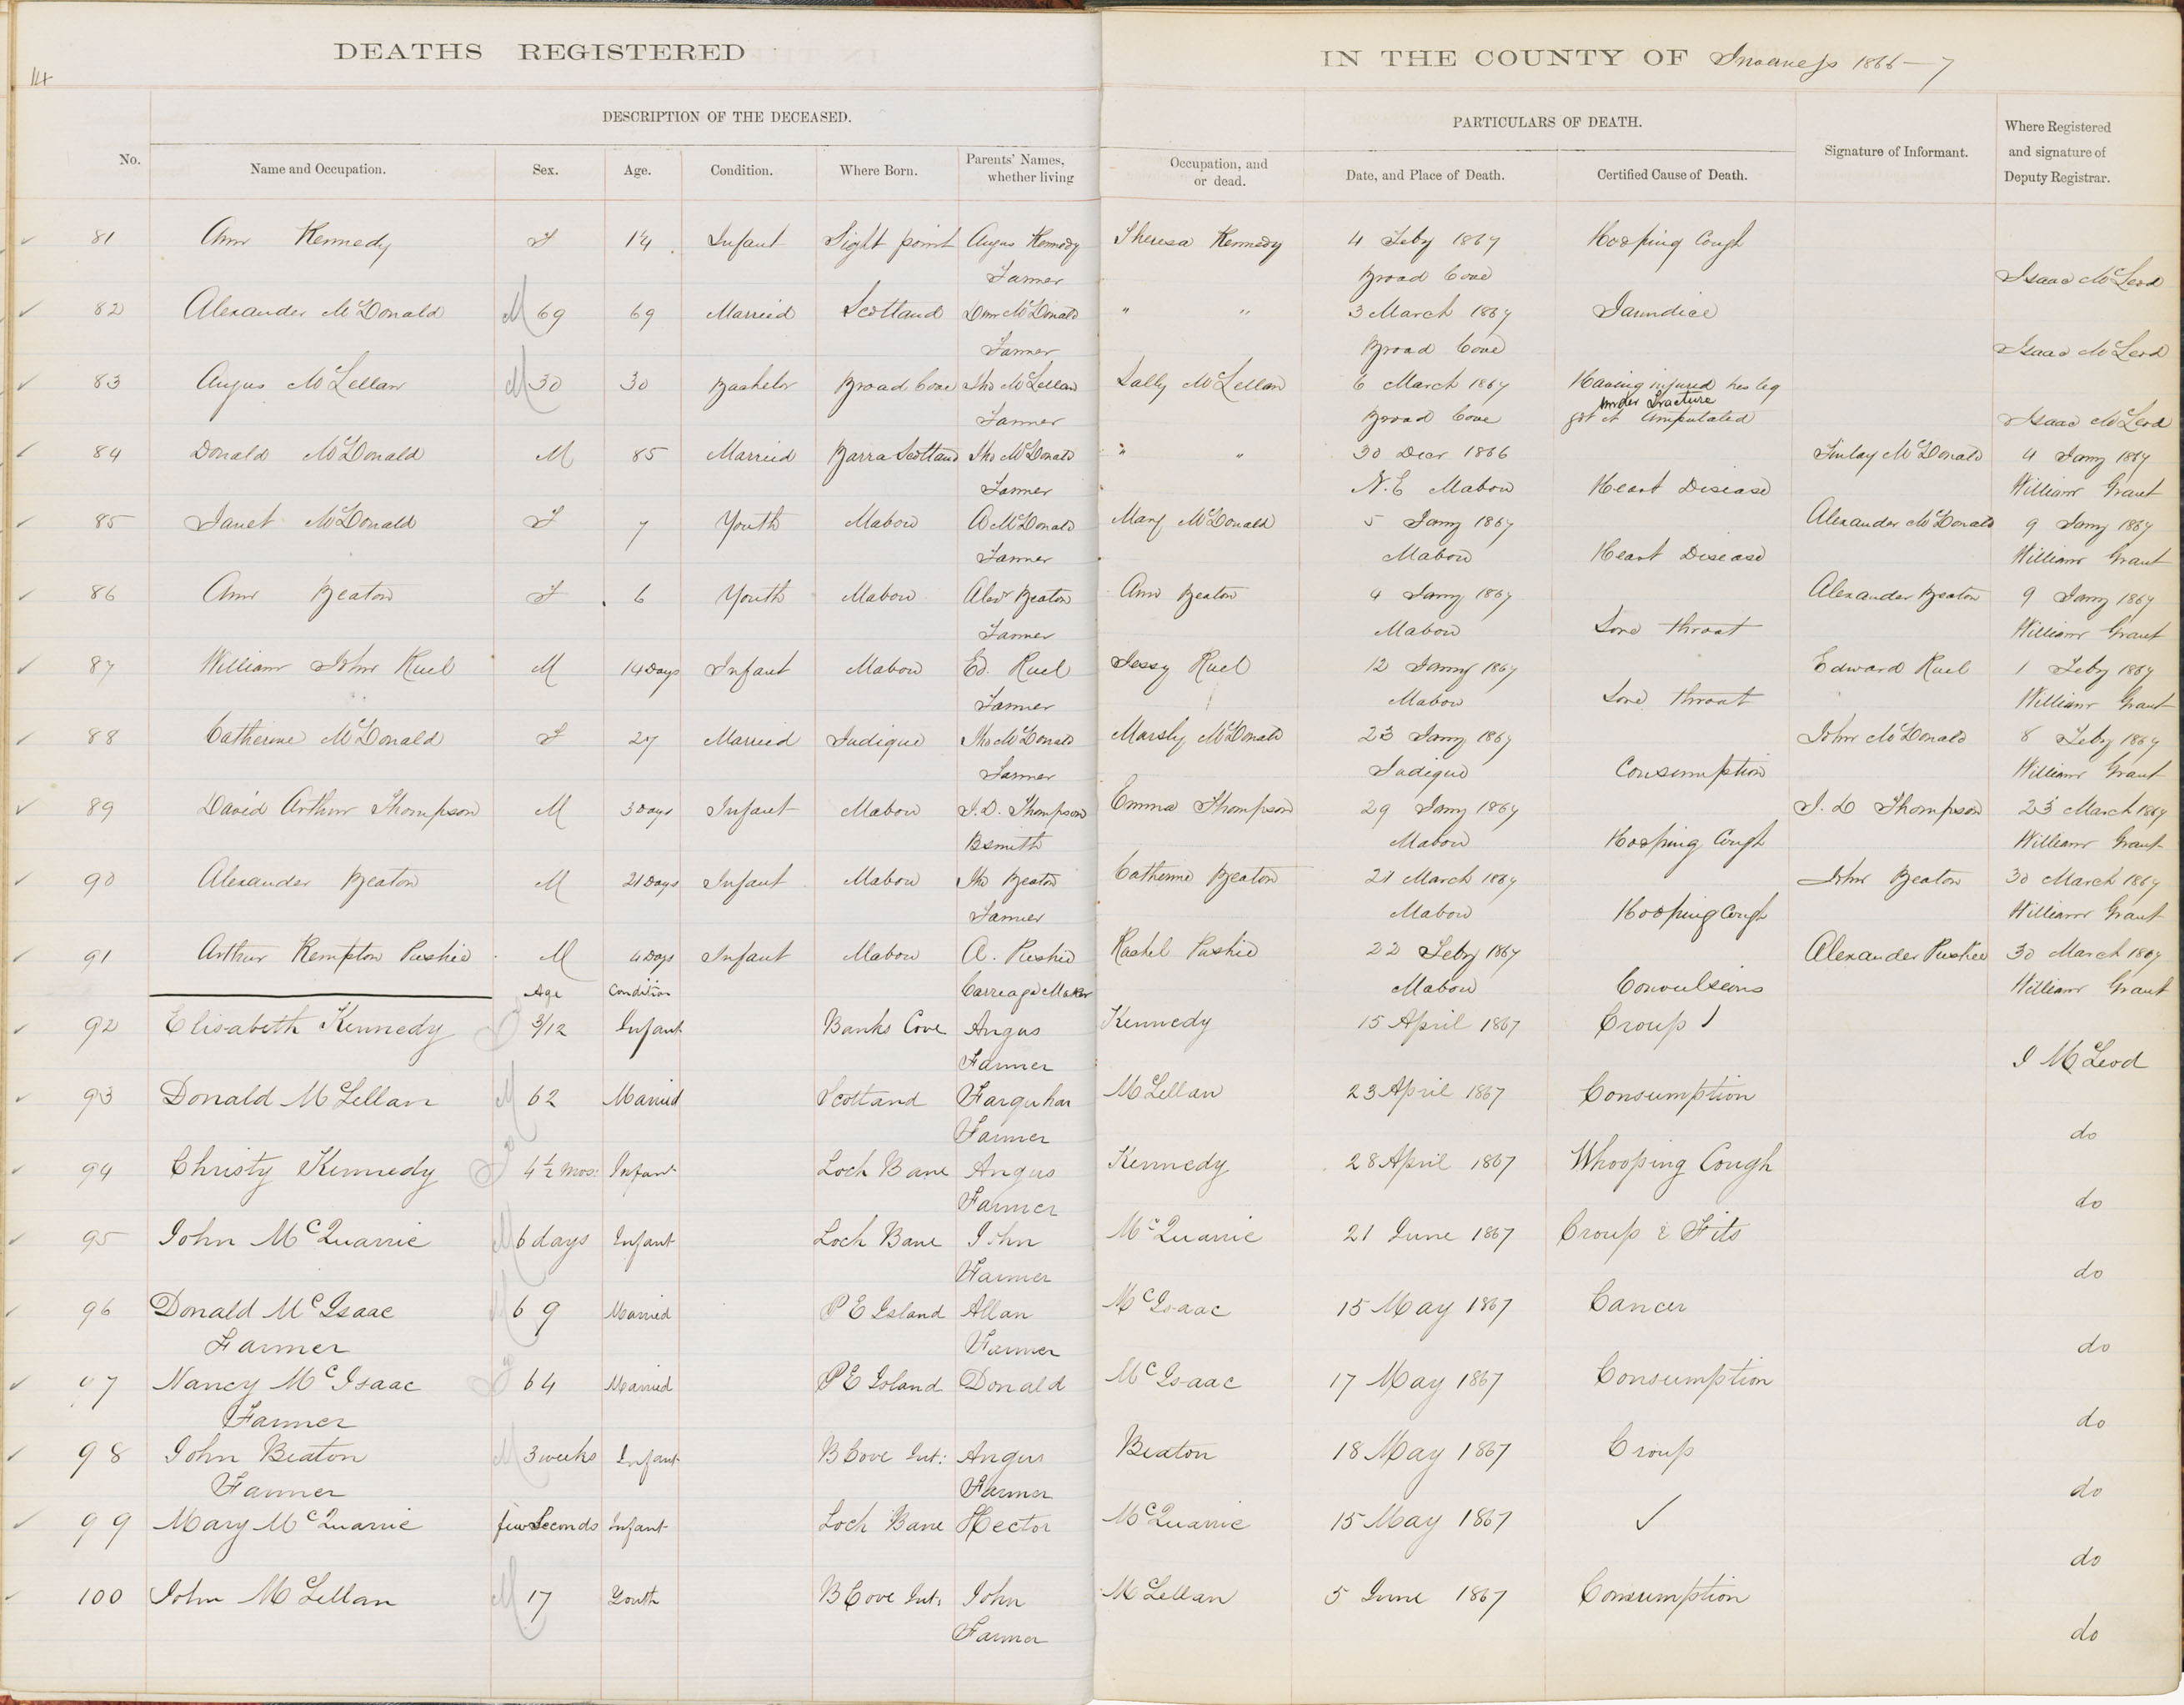 DEATHS REGISTERED IN THE COUNTY OF Inverness 1866-7
14
DESCRIPTION OF THE DECEASED. PARTICULARS OF DEATH.
No. Name and Occupation. Sex. Age. Condition. Where Born. Parents' Names, whether living Occupation, and or dead. Date, and Place of Death. Certified Cause of Death. Signature of Informant. Where Registered and signature of Deputy Registrar.
81 Ann Kennedy F 14 Infant Sight point Angus Kennedy Theresa Kennedy 4 Feby 1867 Hooping Cough
Farmer Broad Cove Isaac McLeod
82 Alexander McDonald M 69 69 Married Scotland Dun McDonald " " 3 March 1867 Jaundice
Farmer Broad Cove Isaac McLeod
83 Angus McLellan M 30 30 Bachelor Broad Cove Jho McLellan Sally McLellan 6 March 1867 Having injured his leg
under Fracture
Farmer Broad Cove got it Amputated Isaac McLeod
84 Donald McDonald M 85 Married Barra Scotland Jho McDonald " " 30 Decr 1866 Finlay McDonald 4 Jany 1867
Farmer N.E Mabou Heart Disease William Grant
85 Janet McDonald F 7 Youth Mabou A McDonald Mary McDonald 5 Jany 1867 Alexander McDonald 9 Jany 1867
Farmer Mabou Heart Disease William Grant
86 Ann Beaton F 6 Youth Mabou Alexr Beaton Ann Beaton 4 Jany 1867 Alexander Beaton 9 Jany 1867
Farmer Mabou Sore throat William Grant
87 William John Ruel M 14 Days Infant Mabou Ed. Ruel Jessy Ruel 12 Jany 1867 Edward Ruel 1 Feby 1867
Farmer Mabou Sore throat William Grant
88 Catherine McDonald F 27 Married Judique Jho McDonald Marsly McDonald 23 Jany 1867 John McDonald 8 Feby 1867
Farmer Judique Consumption William Grant
89 David Arthur Thompson M 3 Days Infant Mabou J.D. Thompson Emma Thompson 29 Jany 1867 J. D Thompson 23 March 1867
Bsmith Mabou Hooping Cough William Grant
90 Alexander Beaton M 21 Days Infant Mabou Jho Beaton Catherine Beaton 21 March 1867 John Beaton 30 March 1867
Farmer Mabou Hooping Cough William Grant
91 Arthur Kempton Pushie M 4 Days Infant Mabou A. Pushie Rachel Pushie 22 Feby 1867 Alexander Pushee 30 March 1867
Age Condition Carriage Maker Mabou Convulsions William Grant
92 Elisabeth Kennedy F 3/12 Infant Banks Cove Angus Kennedy 15 April 1867 Croup
Farmer I McLeod
93 Donald McLellan M 62 Married Scotland Farquhar McLellan 23 April 1867 Consumption
Farmer do
94 Christy Kennedy F 4½ mos: Infant Loch Bane Angus Kennedy 28 April 1867 Whooping Cough
Farmer do
95 John McQuarrie M 6 days Infant Loch Bane John McQuarrie 21 June 1867 Croup & Fits
Farmer do
96 Donald McIsaac M 69 Married P E Island Allan McIsaac 15 May 1867 Cancer
Farmer Farmer do
97 Nancy McIsaac F 64 Married P E Island Donald McIsaac 17 May 1867 Consumption
Farmer do
98 John Beaton M 3 weeks Infant B Cove Int: Angus Beaton 18 May 1867 Croup
Farmer Farmer do
99 Mary McQuarrie few Seconds Infant Loch Bane Hector McQuarrie 15 May 1867
do
100 John McLellan M 17 Youth B Cove Int: John McLellan 5 June 1867 Consumption
Farmer do